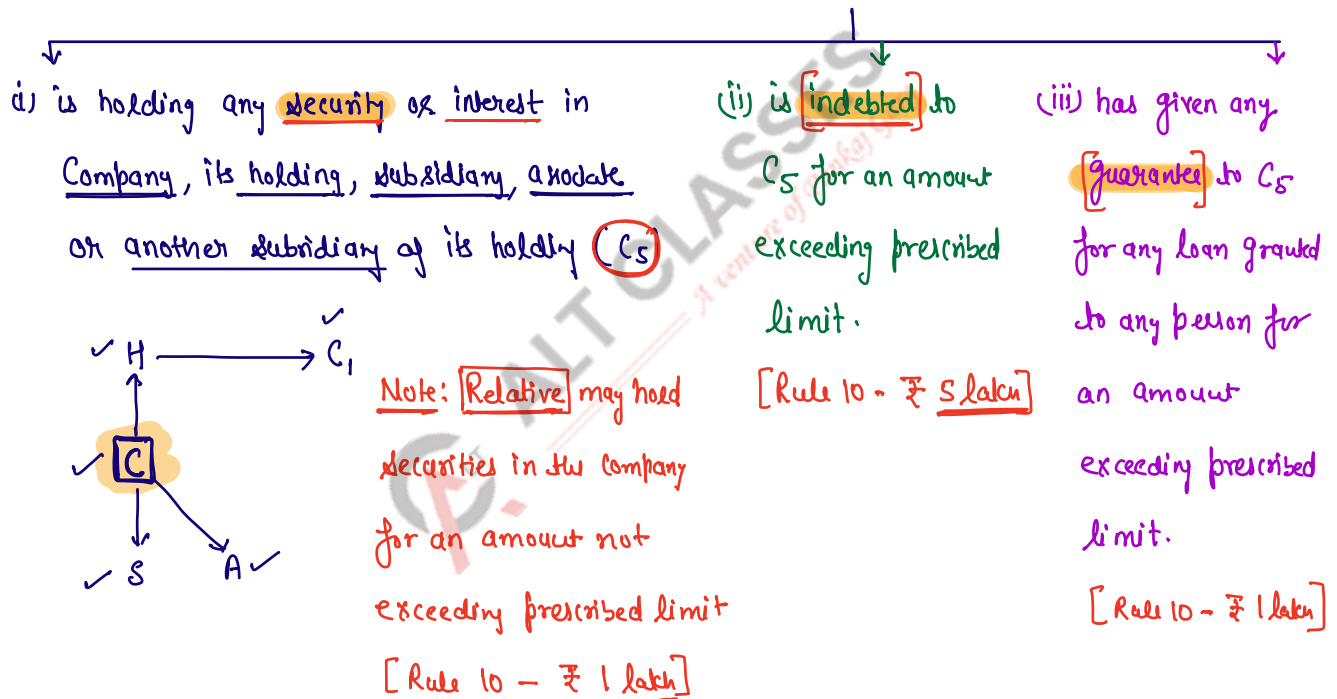 i) is holding any security or interest in
Company, its holding, subsidiary, associate
or another subsidiary of its holding (C5)
H C1
C
S A
Note: Relative may hold
securities in the company
for an amount not
exceeding prescribed limit
[Rule 10 - ₹ 1 lakh]
(ii) is [indebted] to
C5 for an amount
exceeding prescribed
limit.
[Rule 10 - ₹ 5 lakh]
(iii) has given any
[guarantee] to C5
for any loan granted
to any person for
an amount
exceeding prescribed
limit.
[Rule 10 - ₹ 1 lakh]
ALT CLASSES
A venture of